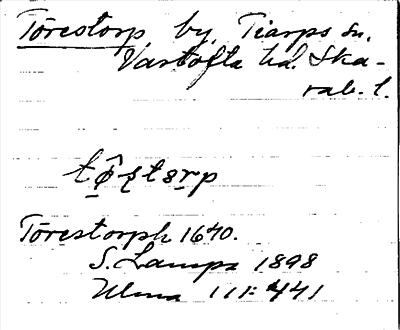 Torestorp by, Tiarps sn,
Vartofta hd. Ska-
rab. l.
tø̂ştərp
Torestorph 1640.
S. Lampa 1898
Ulma 111: 441